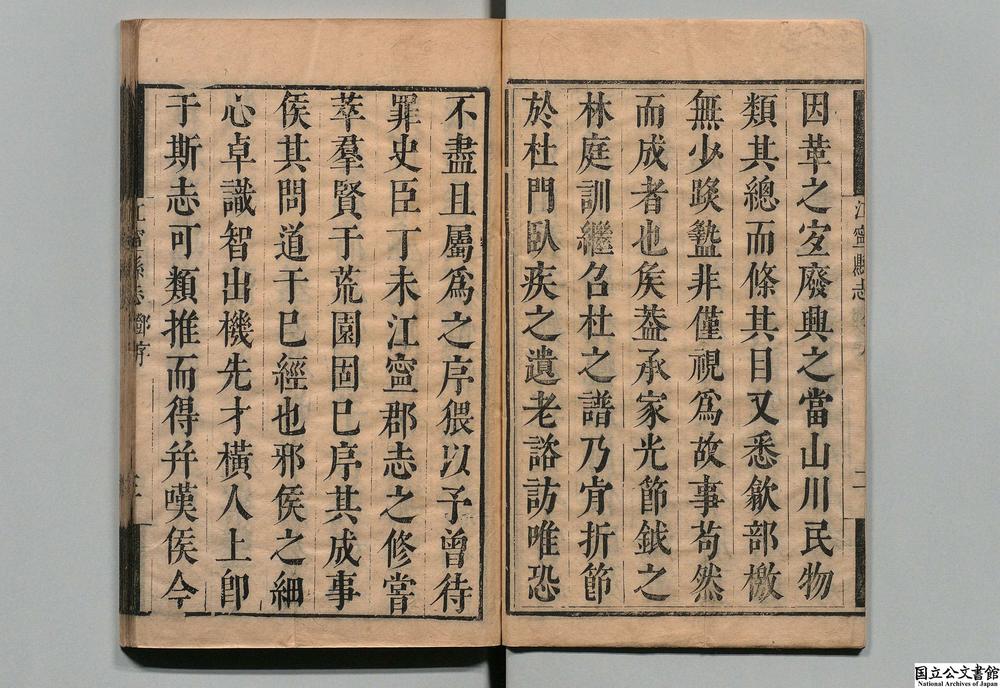 因革之宐廢興之當山川民物
類其總而條其目又悉歙部檄
無少踐盭非僅視爲故事苟然
而成者也矦葢承家光節鉞之
林庭訓繼召杜之譜乃肯折節
於杜門臥疾之遺老諮訪唯恐
不盡且屬爲之序猥以予曾待
罪史臣丁未江寧郡志之修嘗
萃羣賢于荒園固巳序其成事
侯其問道于巳經也邪侯之細
心卓識智出機先才橫人上卽
于斯志可類推而得幷嘆侯今
江寧縣志
江寧縣志 序
国立公文書館
National Archives of Japan